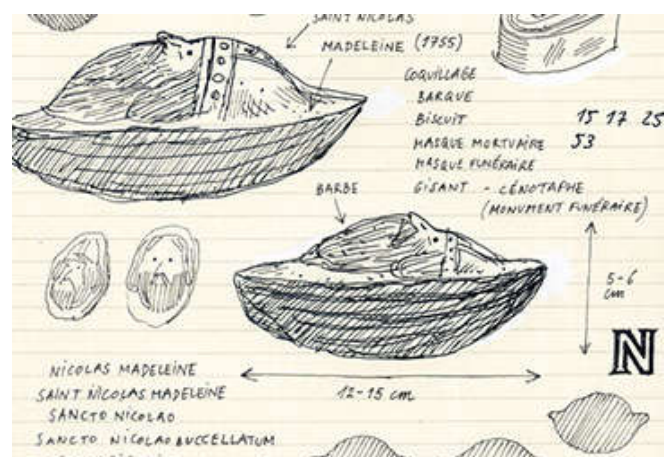 SAINT NICOLAS
MADELEINE (1755)
COQUILLAGE
BARQUE
BISCUIT
MASQUE MORTUAIRE
MASQUE FUNÉRAIRE
GISANT - CÉNOTAPHE
(MONUMENT FUNÉRAIRE)
15 17 25
53
BARBE
5-6
cm
N
12-15 cm
NICOLAS MADELEINE
SAINT NICOLAS MADELEINE
SANCTO NICOLAO
SANCTO NICOLAO BUCCELLATUM